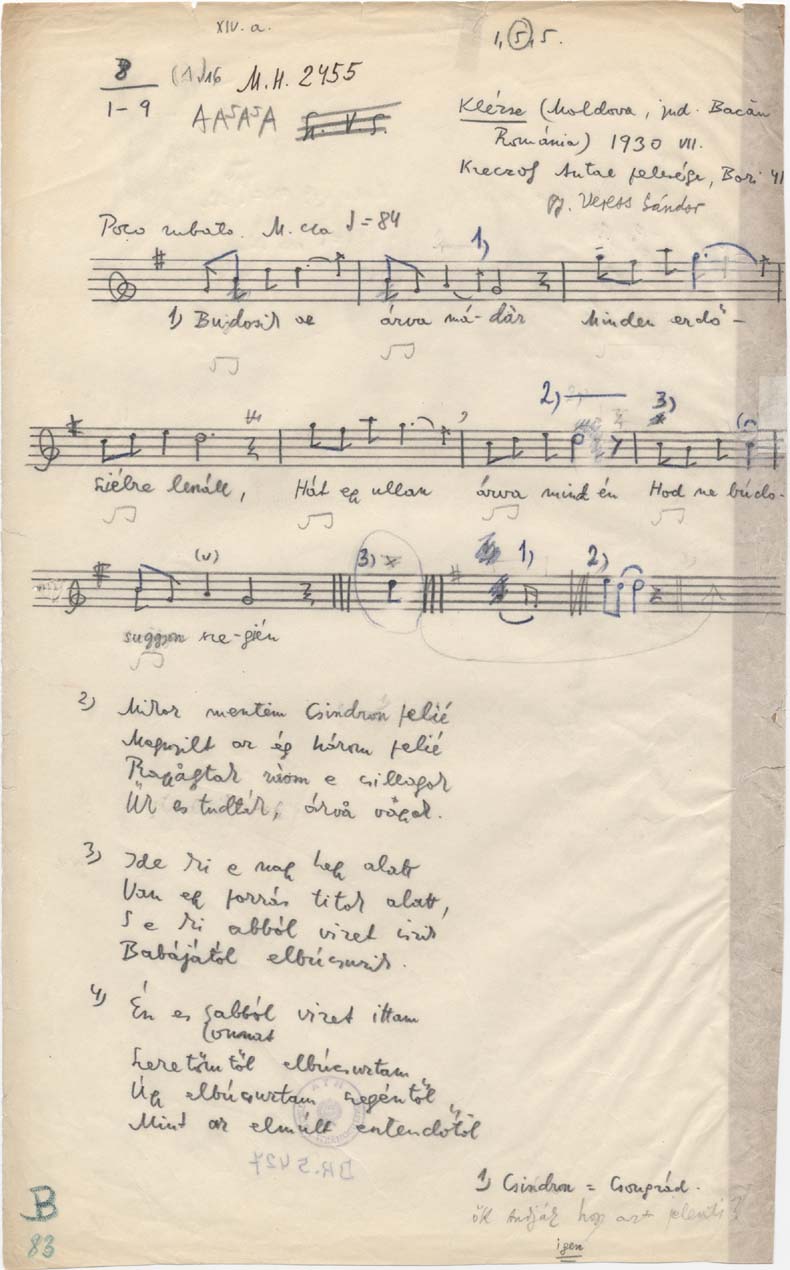 XIV. a.
1, 5, 5.
8
1-9
M.H. 2455
AA⁵A⁵A
Klézse (Moldova, jud. Bacău
Románia) 1930 VII.
Antal felesége, Bori 41
gy. Veress Sándor
Poco rubato. M. cca ♩=84
1)
1) Bujdosik az árva má-dàr Minden erdő-
2) 3)
szélre lenáll, Hát eg ullan árva mind én Hod ne búdo-
3) x 1) 2)
suggyon sze-gién
2) Mikor mentem Csindron felié
Megnyilt az ég három felié
Ragågtak ràom e csillagok
Ük es tudták, árvå vågok.
3) Ide ki e nagy hegy alatt
Van egy forrás titok alatt,
S e ki abból vizet iszik
Babájától elbúcsuzik.
4) Én es abból vizet ittam
onnat
Szeretőmtől elbúcsuztam
Úgy elbúcsuztam szegéntől
Mint az elmúlt esztendőtől
BR. 5427
1) Csindron = Csongrád.
ők tudják hogy azt jelenti?
igen
B
83